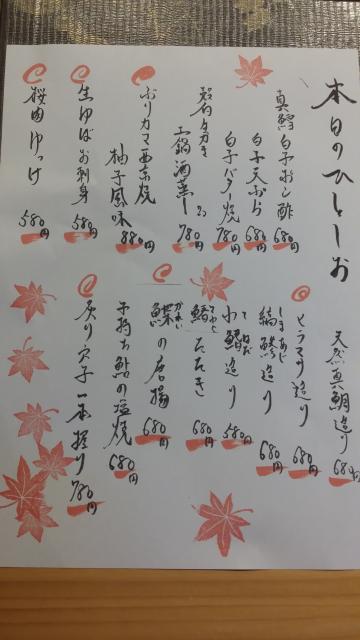 本日のひとしお
真鱈白子ポン酢
680円
白子天ぷら
680円
白子バター焼
780円
殻付カキ
土鍋酒蒸し
780円
ぶりカマ西京焼
柚子風味
880円
生ゆばお刺身
580円
桜肉ゆっけ
580円
天然真鯛造り
680円
ヒラマサ造り
680円
しまあじ
縞鯵造り
680円
造り
580円
たたき
680円
かれい
鰈の唐揚
680円
子持ち鮎の塩焼
680円
炙り穴子一本握り
780円